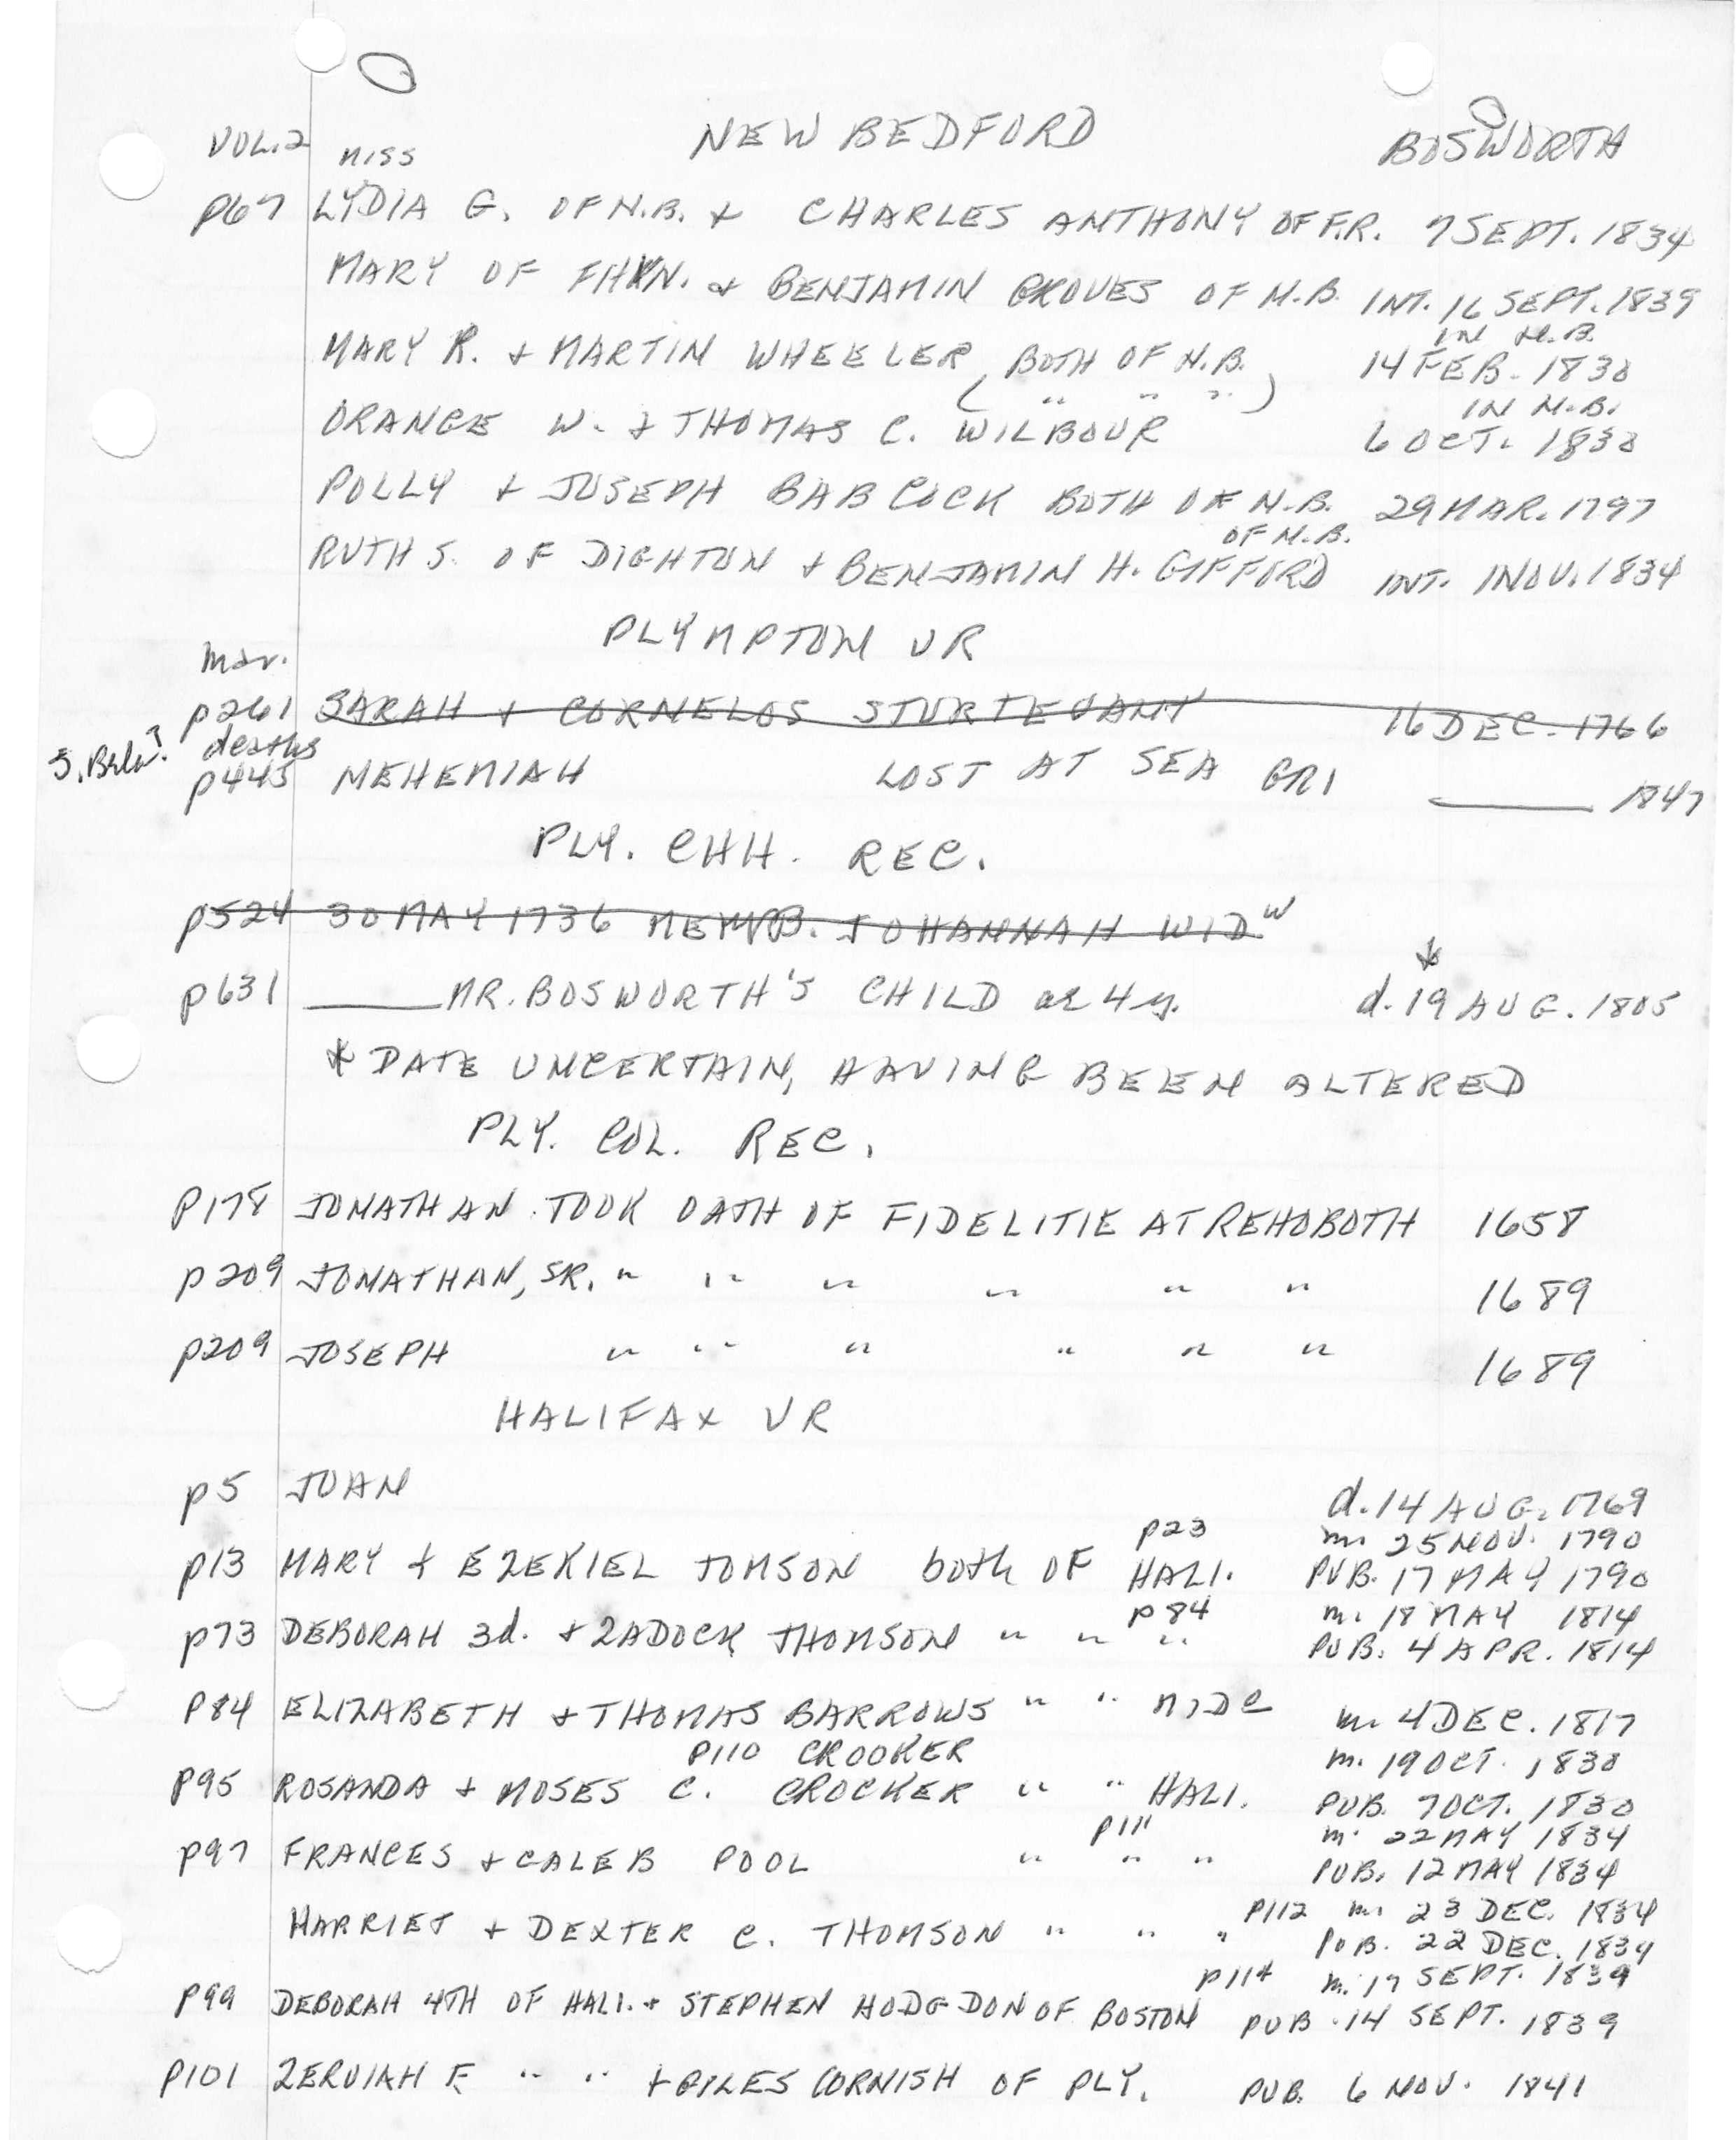 VOL.2 NEW BEDFORD BOSWORTH
MISS
p67 LYDIA G. OF N.B. + CHARLES ANTHONY OF F.R. 7 SEPT. 1834
MARY OF FHVN. + BENJAMIN GROVES OF N.B. INT. 16 SEPT. 1839
IN N.B.
MARY R. + MARTIN WHEELER BOTH OF N.B. 14 FEB. 1830
( " " " ) IN N.B.
ORANGE W. + THOMAS C. WILBOUR 6 OCT. 1830
POLLY + JOSEPH BABCOCK BOTH OF N.B. 29 MAR. 1797
OF N.B.
RUTH S. OF DIGHTON + BENJAMIN H. GIFFORD INT. 1 NOV. 1834
PLYMPTON VR
mar.
p261 SARAH + CORNELOS STURTEVANT 16 DEC. 1766
S. BrLw.? deaths
p445 NEHEMIAH LOST AT SEA GR1 ——— 1847
PLY. CHH. REC.
p524 30 MAY 1736 MEMB. JOHANNAH WID.W
*
p631 ———MR. BOSWORTH'S CHILD ae 4 y. d. 19 AUG. 1805
* DATE UNCERTAIN, HAVING BEEN ALTERED
PLY. COL. REC.
P178 JONATHAN TOOK OATH OF FIDELITIE AT REHOBOTH 1658
p209 JONATHAN, SR. " " " " " " 1689
p209 JOSEPH " " " " " " 1689
HALIFAX VR
p5 JOAN d. 14 AUG. 1769
p23 m. 25 NOV. 1790
p13 MARY + EZEKIEL JONSON both OF HALI. PUB. 17 MAY 1790
p84 m. 18 MAY 1814
p73 DEBORAH 3d. + ZADOCK THOMSON " " " PUB. 4 APR. 1814
P84 ELIZABETH + THOMAS BARROWS " " MIDE m. 4 DEC. 1817
P110 CROOKER m. 19 OCT. 1830
P95 ROSANDA + MOSES C. CROCKER " " HALI. PUB. 7 OCT. 1830
P111 m. 22 MAY 1834
p97 FRANCES + CALEB POOL " " " PUB. 12 MAY 1834
P112 m. 23 DEC. 1834
HARRIET + DEXTER C. THOMSON " " " PUB. 22 DEC. 1834
p114 m. 17 SEPT. 1839
P99 DEBORAH 4TH OF HALI. + STEPHEN HODGDON OF BOSTON PUB. 14 SEPT. 1839
P101 ZERUIAH F. " " + GILES CORNISH OF PLY. PUB. 6 NOV. 1841